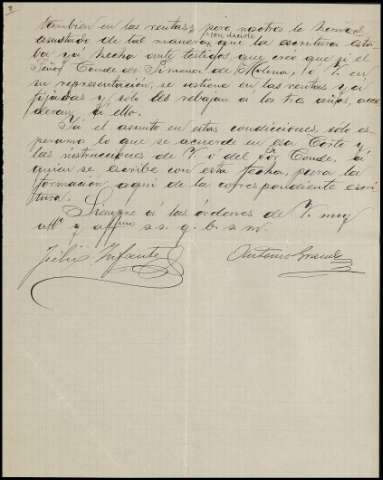 2
también en las rentas, pero nosotros lo hemos
ajustado de tal manera, que la escritura esta-
ba ya hecha ante testigos que creo que si el
Señor Conde de Priego de Molina, o V. en
su representación, se sostiene en las rentas ya
fijadas y solo les rebajan a los tres años, acce-
deran a ello.
Ya el asunto en estas condicciones, solo es-
peramos lo que se acuerde en esa Corte y
las instrucciones de V. ó del Sor Conde, a
quien se escribe con esta fecha, para la
formacion aqui de la correspondiente escri-
tura.
Siempre á las órdenes de V. muy
affs y affmos s. s. q. b. s. m.
Julio Infante Antonio